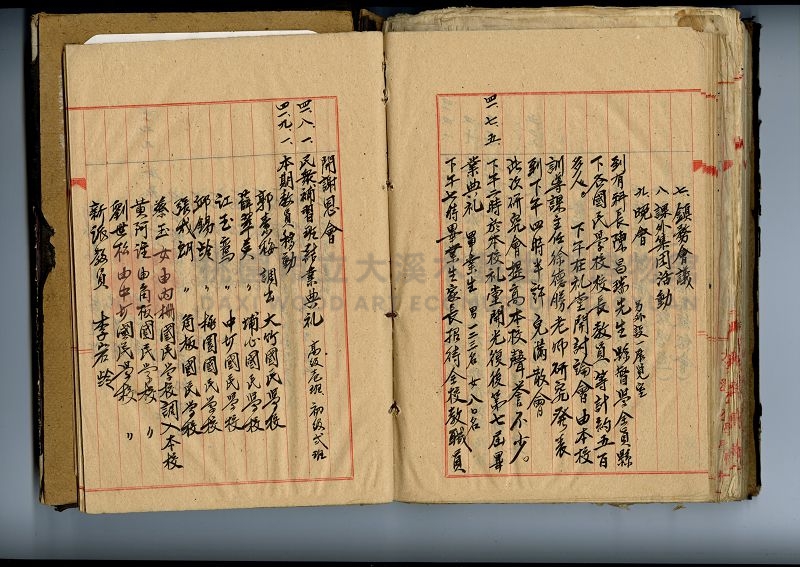 七、鎮務會議
八、課外集團活動
九、晚會 另外設一展覽室
到有科長陳昌瑞先生縣督學全員縣
下各國民學校校長教員等計約五百
多人。 下午在礼堂開討論會由本校
訓導課主任徐德勝老師研究發表
到下午四時半許充滿散會
此次研究會提高本校聲誉不少。
四一、七、五、 下午二時於本校礼堂開光復後第七屆畢
業典礼 畢業生 男一一三名 女八〇名
下午六時畢業生家長招待全校教職員
開謝恩會
四一、八、一、 民眾補習班結業典礼 高級壱班 初級弍班
四一、九、一、 本期教員移動
郭 梅 調出 大竹國民學校
薛 美 〃 埔心國民學校
江玉鸞 〃 中 國民學校
邱錫 〃 國民學校
張 朝 〃 角板國民學校
蔡玉女由內柵國民學校調入本校
黃阿 由角板國民學校 〃
劉世松由中 國民學校 〃
新派教員 李宏